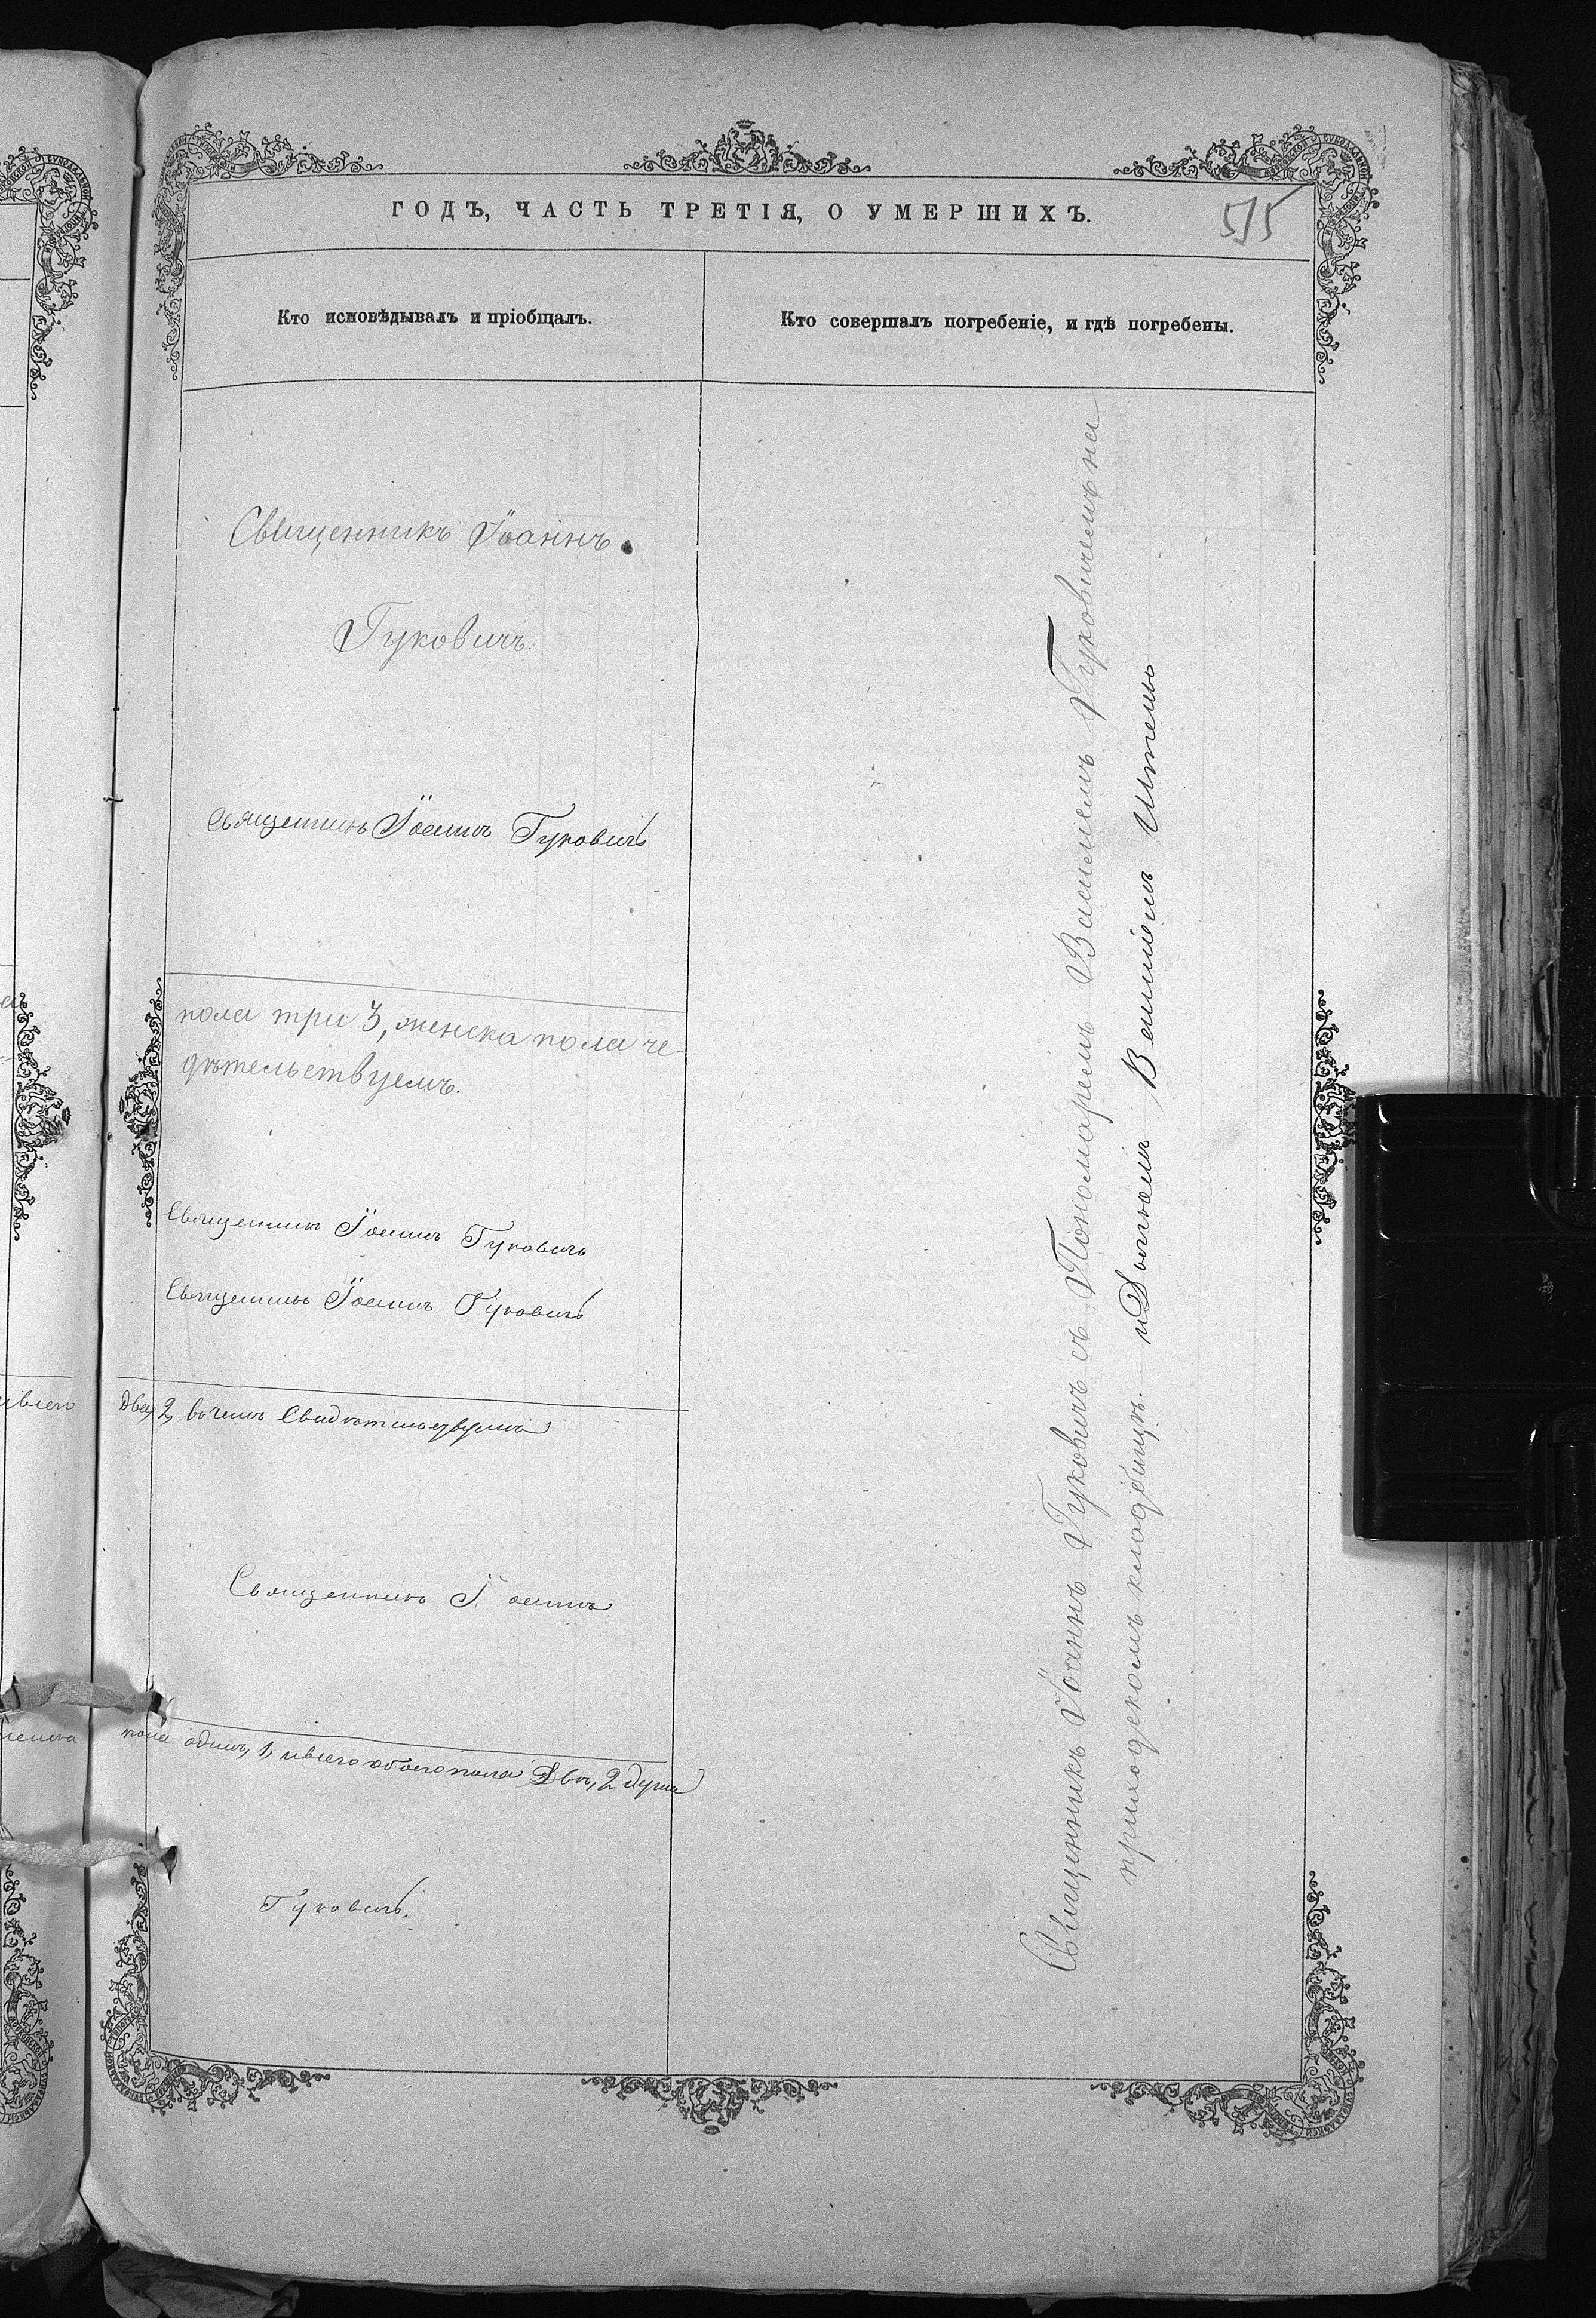 ГОДЪ, ЧАСТЬ ТРЕТІЯ, О УМЕРШИХЪ.
515
Кто исповѣдывалъ и пріобщалъ.
Кто совершалъ погребеніе, и гдѣ погребены.
Священникъ Іоаннъ
Гуковичъ.
Священникъ Іоаннъ Гуковичъ
пола три 3, женска пола че-
дѣтельствуемъ.
Священникъ Іоаннъ Гуковичъ
Священникъ Іоаннъ Гуковичъ
два, 2, въ чемъ Свидѣтельствуемъ
Священникъ Іоаннъ
пола одинъ, 1, и всего обоего пола Двѣ, 2 души
Гуковичъ.
Священникъ Іоаннъ Гуковичъ съ Пономаремъ Василіемъ Гуковичемъ на
приходскомъ кладбищѣ. и Дьячкомъ